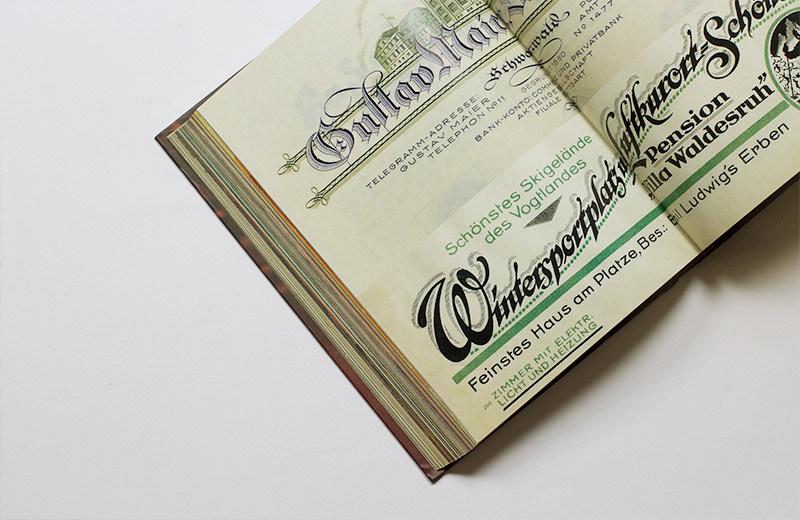 Gustav
Schwarzwald
AMT
Nº 1477
TELEGRAMM-ADRESSE:
GUSTAV MAIER
TELEPHON Nº 11
GEGRÜNDET 1850
BANK-KONTO: COMMERZ UND PRIVATBANK
AKTIENGESELLSCHAFT
FILIALE
Schönstes Skigelände
des Vogtlandes
Wintersportplatz u. Luftkurort=
Pension
Villa Waldesruh"
Feinstes Haus am Platze, Bes.: Ludwig's Erben
ZIMMER MIT ELEKTR.
LICHT UND HEIZUNG